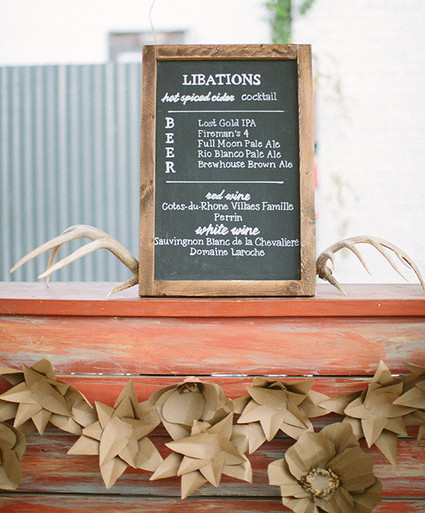 LIBATIONS
hot spiced cider cocktail
BEER
Lost Gold IPA
Fireman's 4
Full Moon Pale Ale
Rio Blanco Pale Ale
Brewhouse Brown Ale
red wine
Cotes-du-Rhone Villaes Famille
Perrin
white wine
Sauvingnon Blanc de la Chevaliere
Domaine Laroche